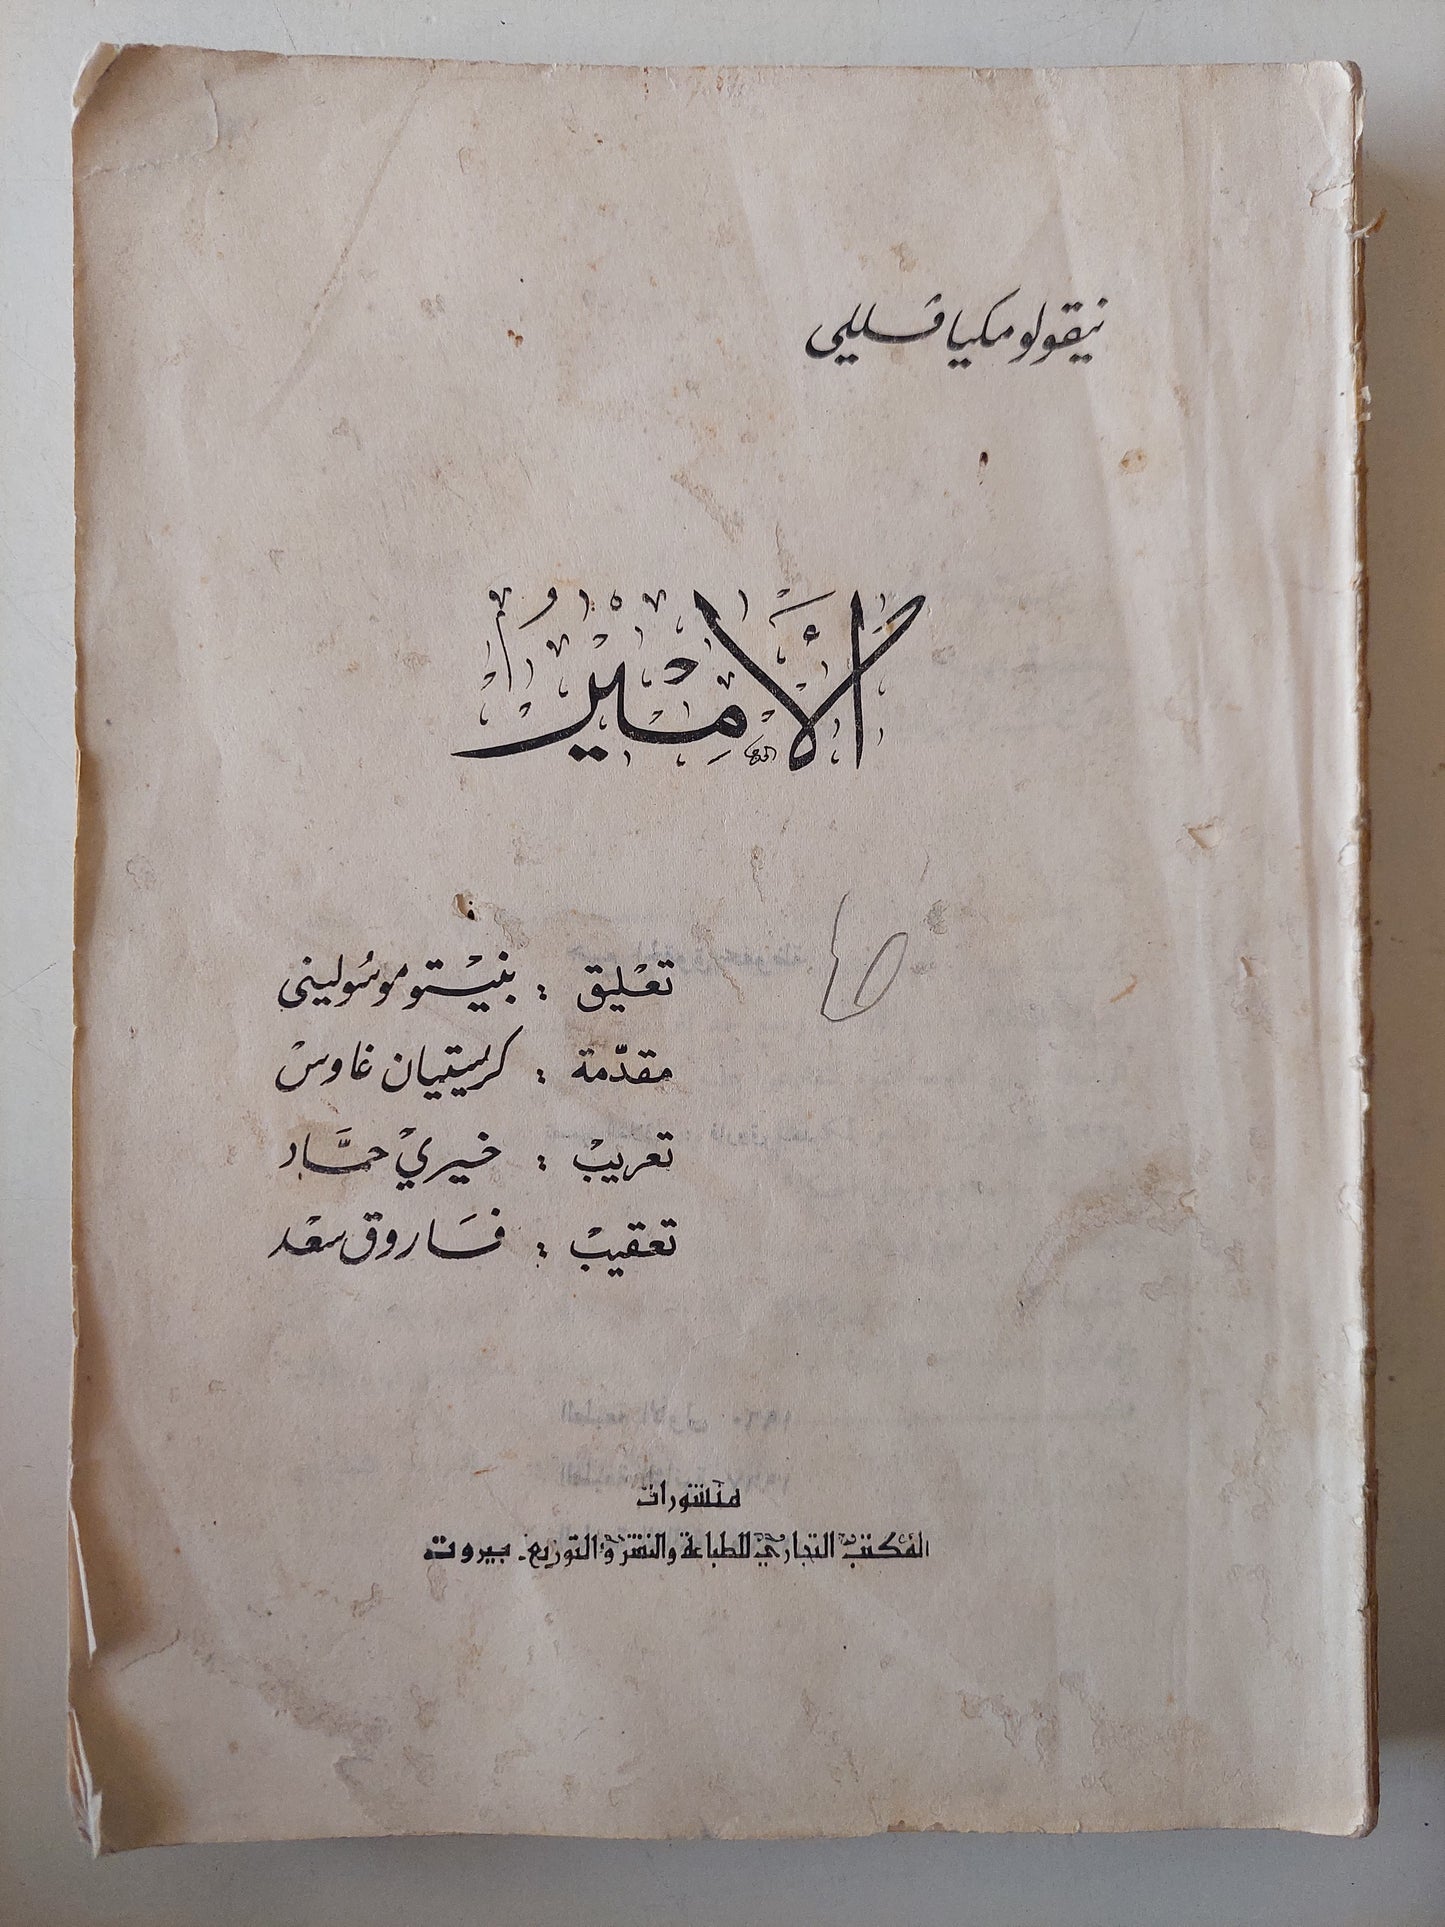 نيقولو مكيافللي
الأَمِيْرُ
تعْليق : بنيْتو موسُوليني
مقدّمة : كريستيان غاوسْ
تعريبْ : خيريْ حمَّاد
تعقيبْ : فَاروق سعْد
منشورات
المكتب التجاري للطباعة والنشر والتوزيع - بيروت